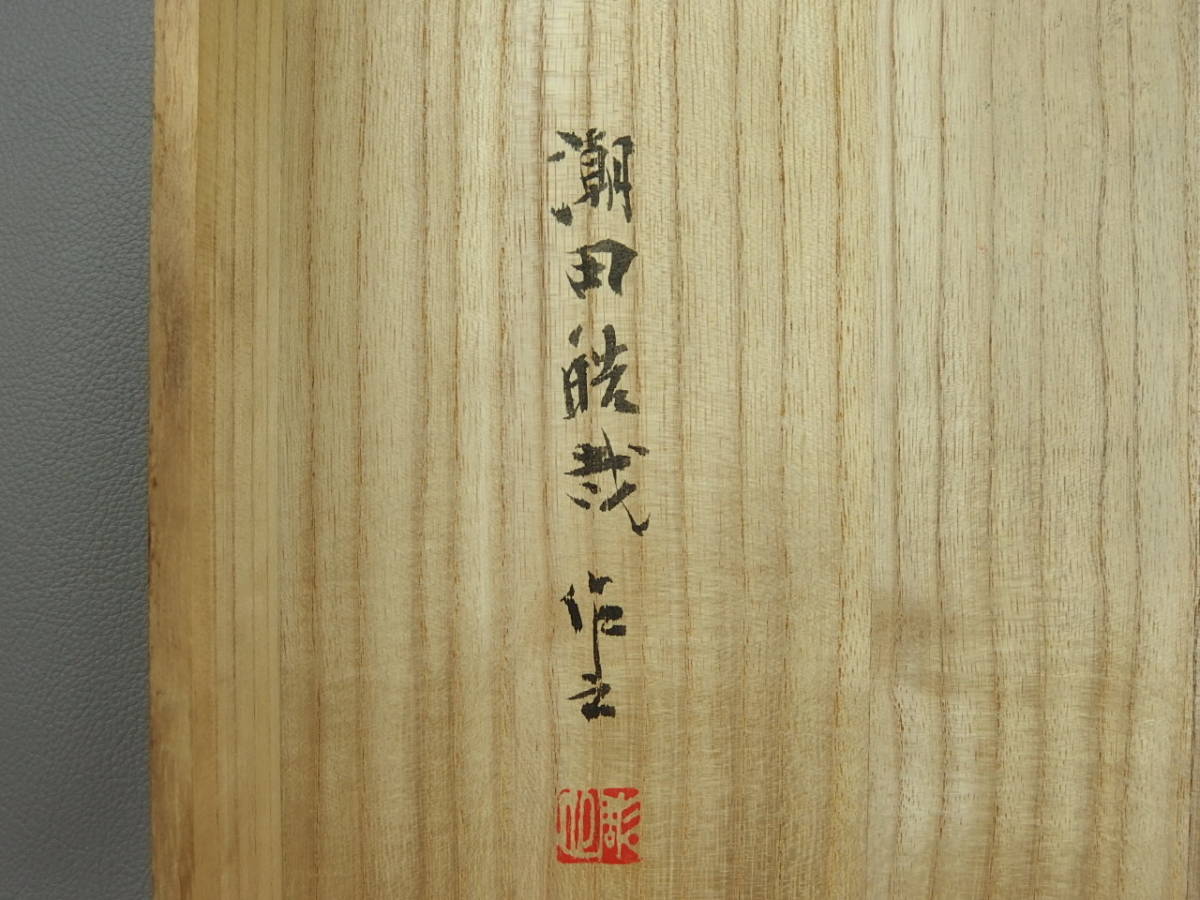 潮田皓哉 作之